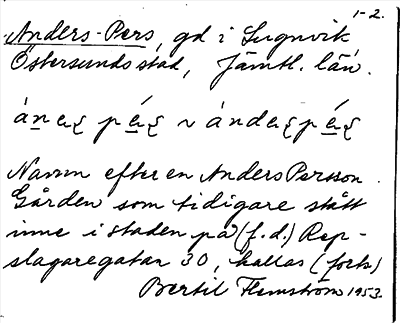 1-2.
Anders-Pers, gd i Lugnvik
Östersunds stad, Jämtl. län.
ánaʂ páʂ ~ ándaʂpáʂ
Namn efter en Anders Persson.
Gården som tidigare stått
inne i staden på (f.d.) Rep-
slagaregatan 30, kallas (forts)
Bertil Flemström 1953.